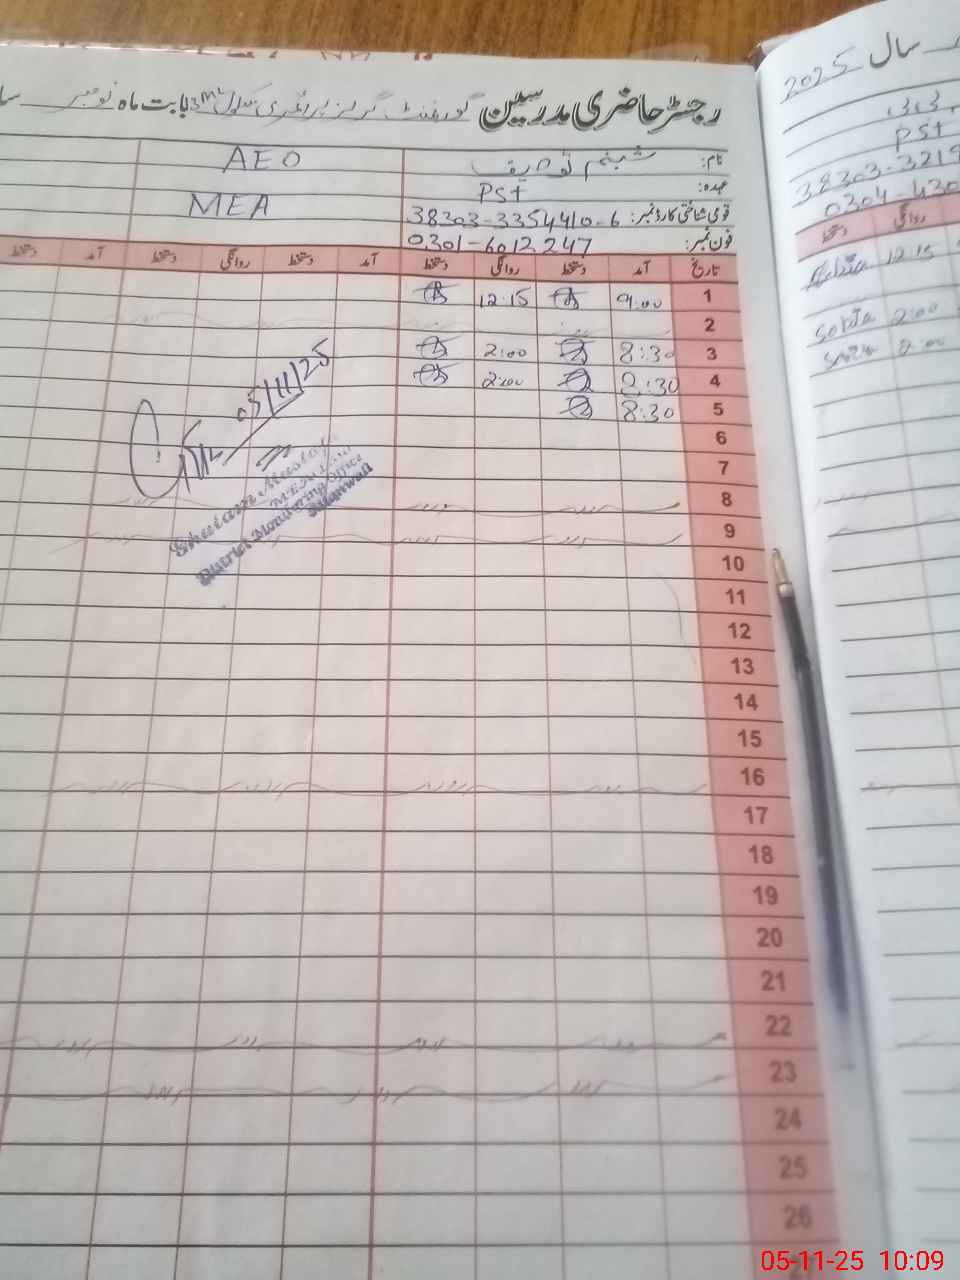 رجسٹر حاضری مدرسین گورنمنٹ گرلز پرائمری سکول 3ML بابت ماہ نومبر
نام: شبنم AEO
عہدہ: PST
قومی شناختی کارڈ نمبر: 38303-3354410-6 MEA
فون نمبر: 0301-6012247
تاریخ آمد دستخط روانگی دستخط آمد دستخط روانگی دستخط آمد دستخط
1 9:00 12:15
2
3 8:30 2:00
4 8:30 2:00
5 8:30
6
7
8
9
10
11
12
13
14
15
16
17
18
19
20
21
22
23
24
25
26
05/11/25
Ghulam
District Monitoring Office
سال 2025
PST
38303-3219
0304-430
روانگی دستخط
12:15
2:00 Sobia
2:00
05-11-25 10:09